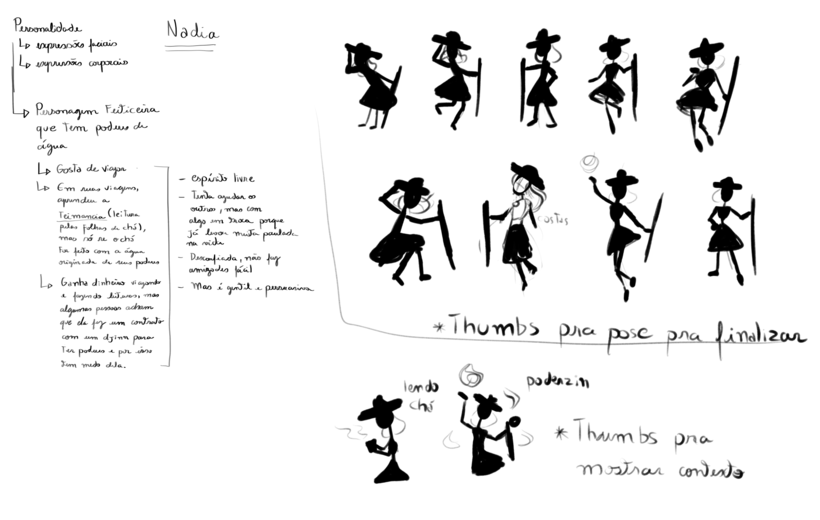 Personalidade
↳ expressões faciais
↳ expressões corporais
Nadia
↳ Personagem Feiticeira
que Tem poderes de
água
↳ Gosta de viajar
↳ Em suas viagens,
aprendeu a
Teimancia (leitura
pelas folhas de chá),
mas só se o chá
For feito com a água
originada de seus poderes
↳ Ganha dinheiro viajando
e fazendo leituras, mas
algumas pessoas acham
que ela fez um contrato
com um djinn para
Ter poderes e por isso
Tem medo dela.
- espírito livre
- Tenta ajudar os
outros, mas com
algo em Troca porque
já levou muita paulada
na vida
- Desconfiada, não faz
amizades fácil
- Mas é gentil e
costas
* Thumbs pra pose pra finalizar
lendo
chá
poderzin
* Thumbs pra
mostrar contexto